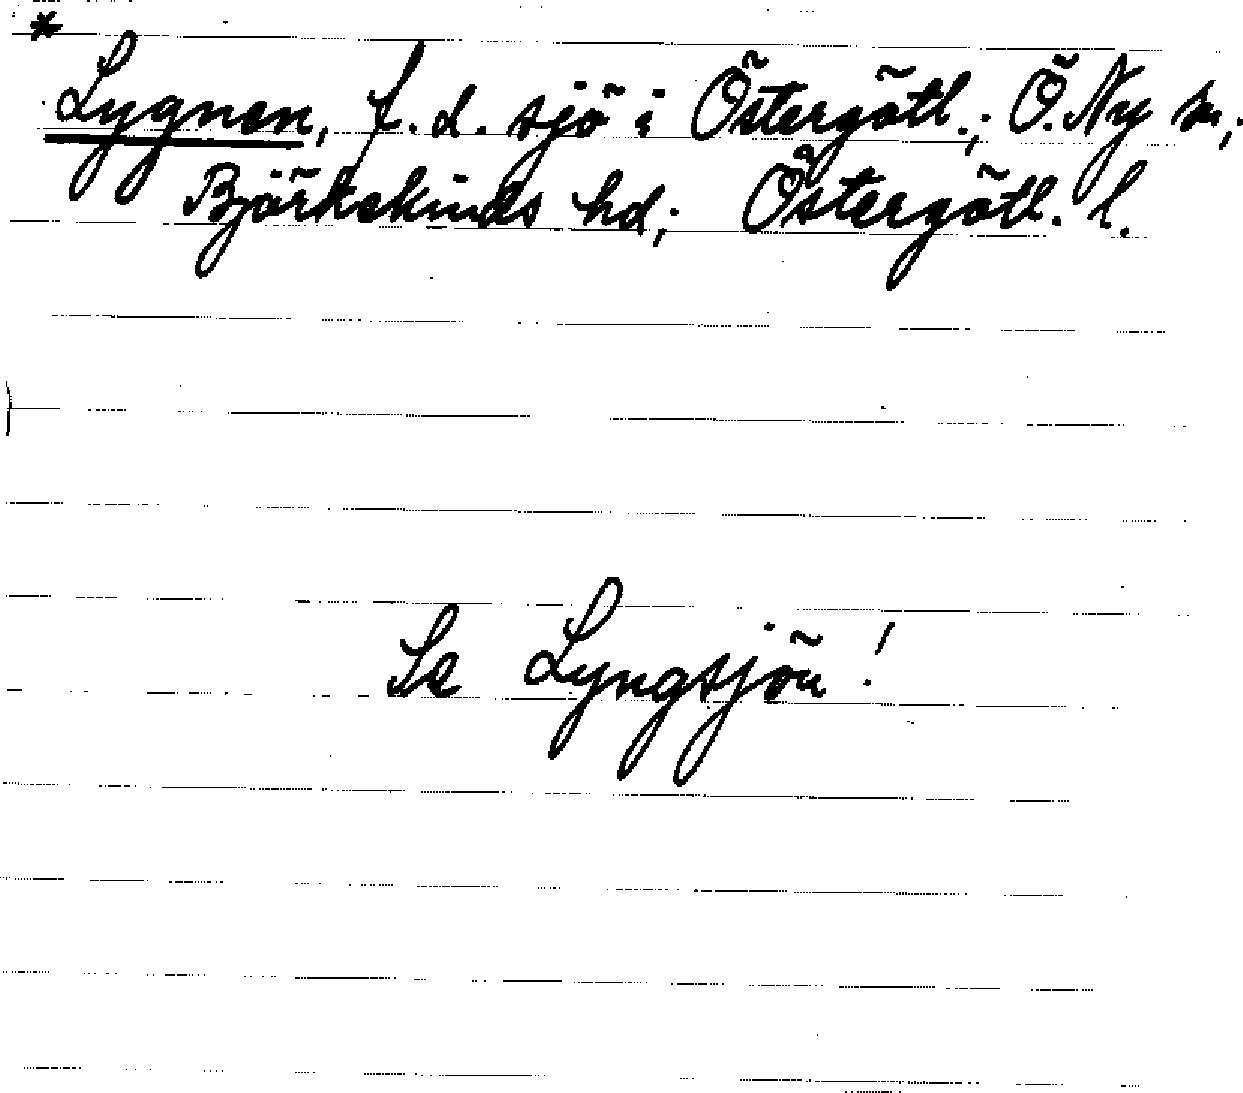 *
Lygnen, f. d. sjö i Östergötl.; Ö. Ny sn;
Björkekinds hd; Östergötl. l.
Se Lyngsjön!